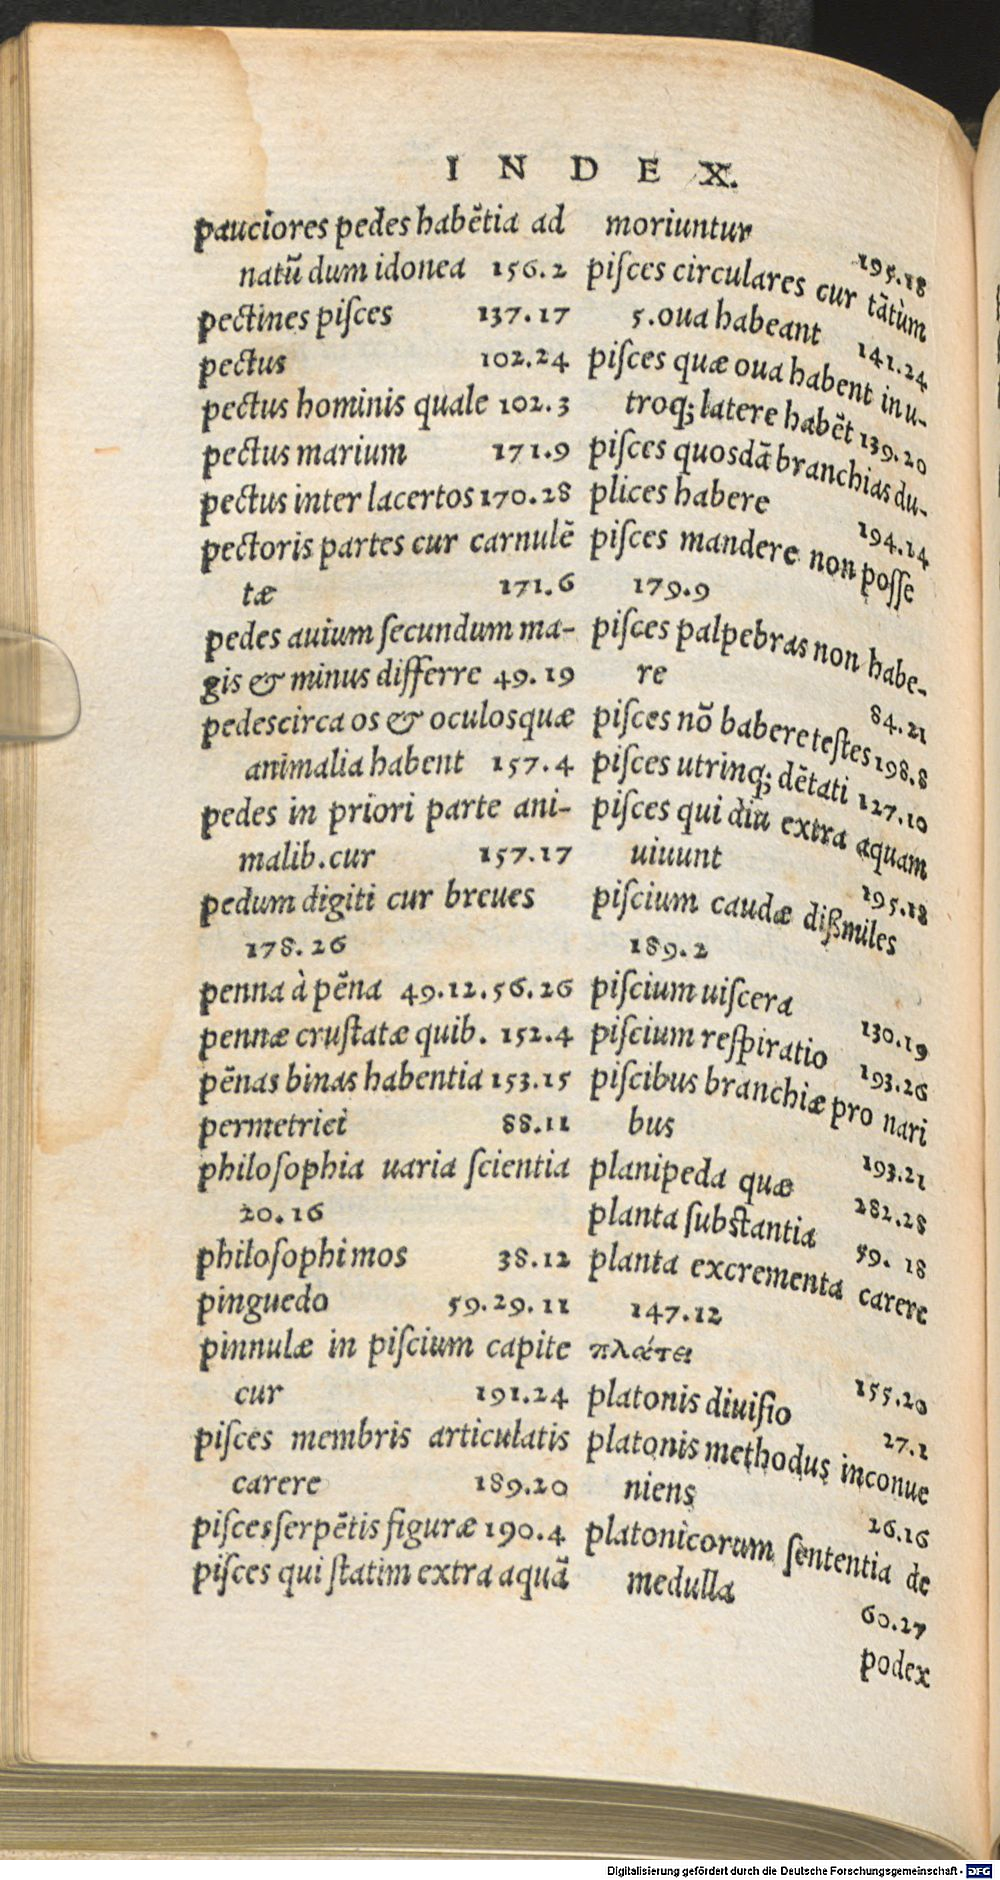 INDEX.
pauciores pedes habẽtia ad
natũ dum idonea 156.2
pectines piſces 137.17
pectus 102.24
pectus hominis quale 102.3
pectus marium 171.9
pectus inter lacertos 170.28
pectoris partes cur carnulẽ
tæ 171.6
pedes auium ſecundum ma-
gis & minus differre 49.19
pedes circa os & oculos quæ
animalia habent 157.4
pedes in priori parte ani-
malib. cur 157.17
pedum digiti cur breues
178.26
penna à pẽna 49.12.56.26
pennæ cruſtatæ quib. 152.4
pẽnas binas habentia 153.15
permetriei 88.11
philoſophia uaria ſcientia
20.16
philoſophi mos 38.12
pinguedo 59.29.11
pinnulæ in piſcium capite
cur 191.24
piſces membris articulatis
carere 189.20
piſces ſerpẽtis figuræ 190.4
piſces qui ſtatim extra aquã
moriuntur 195.18
piſces circulares cur tãtùm
5. oua habeant 141.24
piſces quæ oua habent in u-
troq; latere habẽt 139.20
piſces quosdã branchias du-
plices habere 194.14
piſces mandere non poſſe
179.9
piſces palpebras non habe-
re 84.21
piſces nõ babere teſtes 198.8
piſces utrinq; dẽtati 127.10
piſces qui diu extra aquam
uiuunt 195.18
piſcium caudæ dißmiles
189.2
piſcium uiſcera 130.19
piſcium reſpiratio 193.26
piſcibus branchiæ pro nari
bus 193.21
planipeda quæ 282.28
planta ſubſtantia 59.18
planta excrementa carere
147.12
πλάτει 155.20
platonis diuiſio 27.1
platonis methodus inconue
niens 26.16
platonicorum ſententia de
medulla 60.27
podex
Digitalisierung gefördert durch die Deutsche Forschungsgemeinschaft - DFG